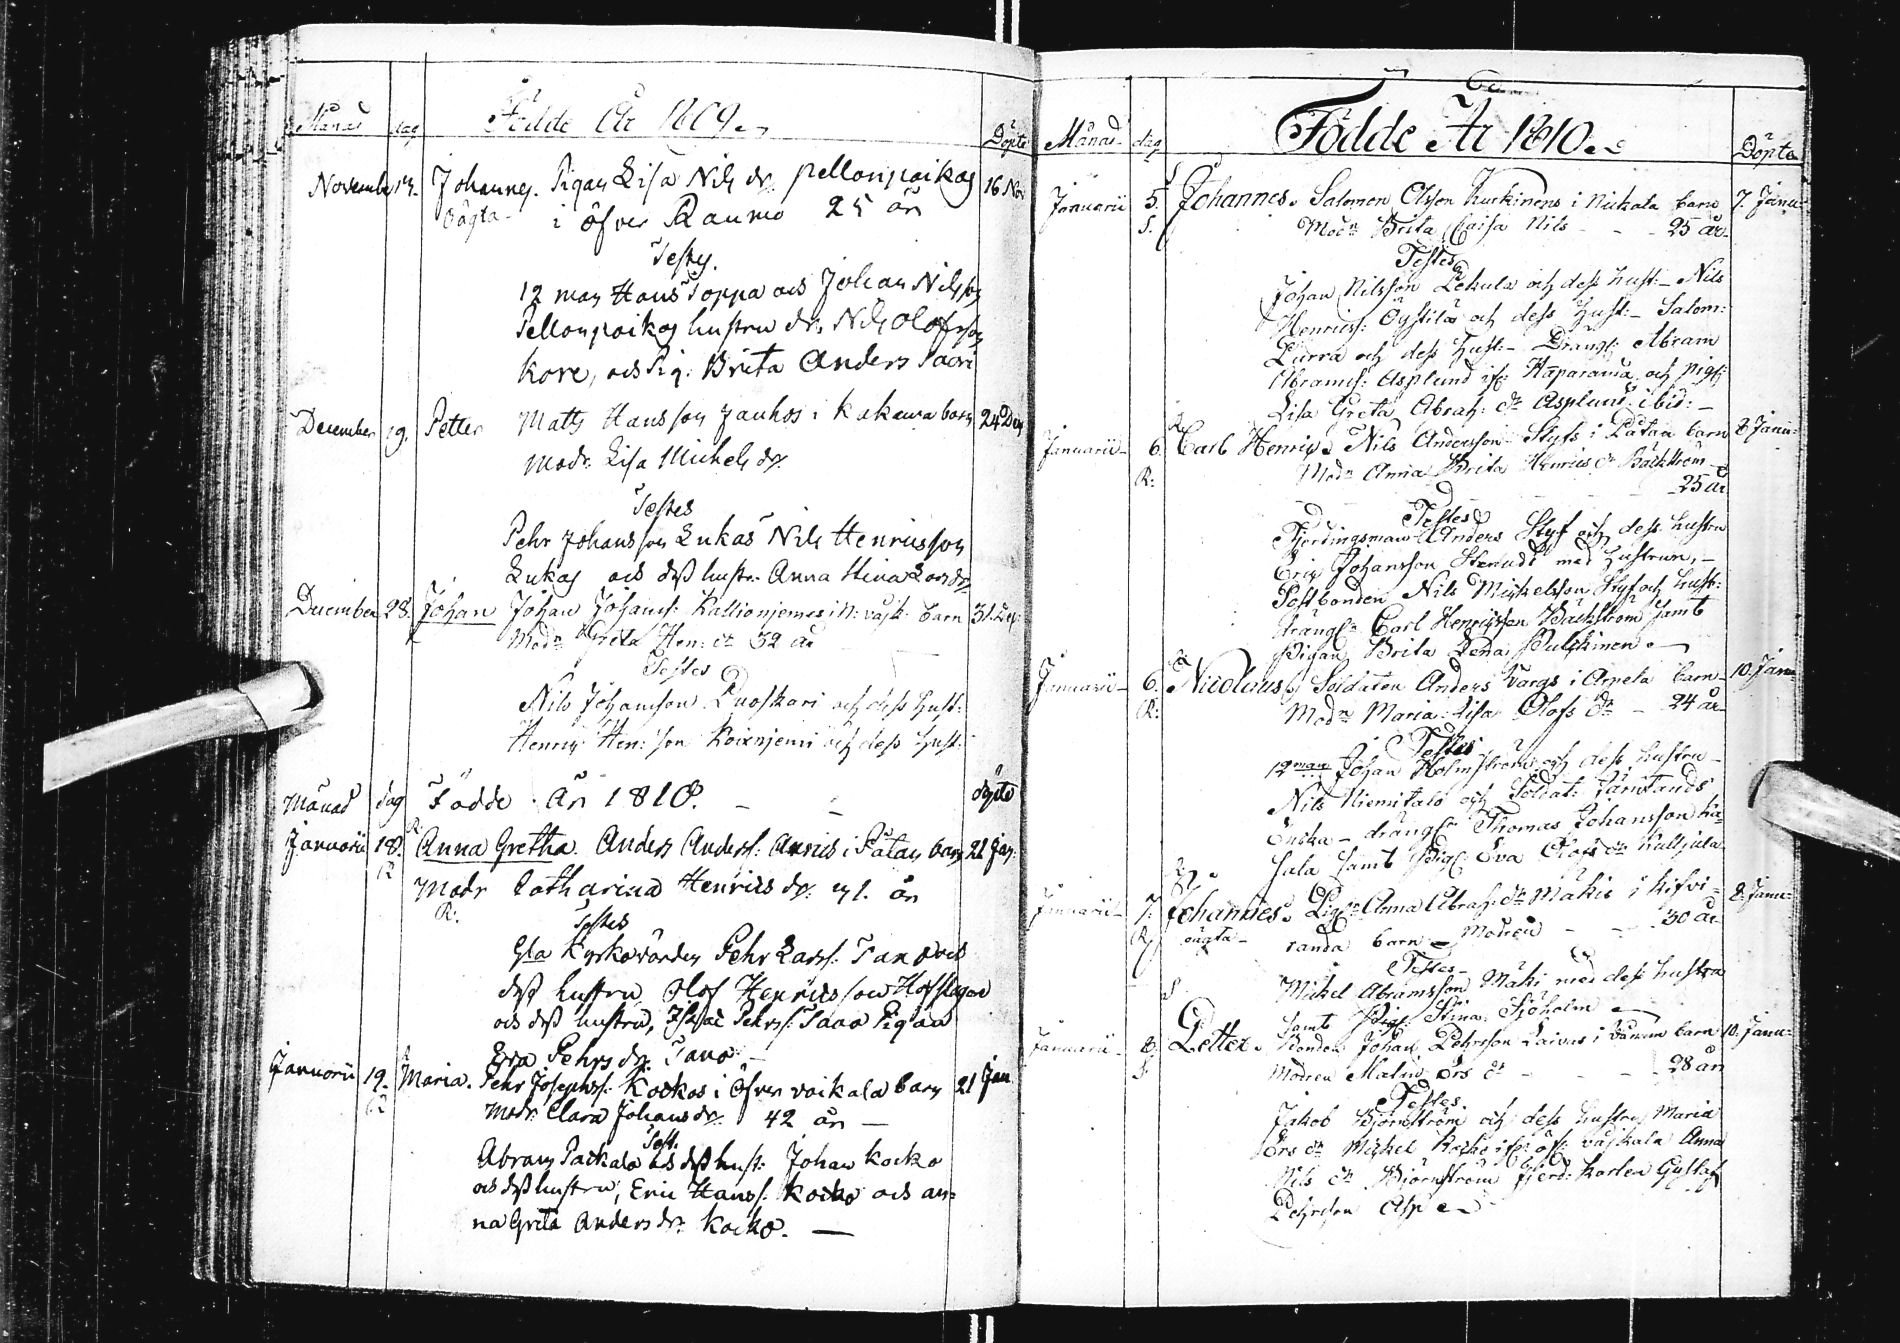 Månad dag Födde År 1809. Döpte
November 14. Johannes. Pigan Lisa Nils dr. Pellonpoikas 16 Nov
Oägta. i öfver Raumo 25 år
Testes.
12 man Hans Toppa och Johan Nilsson
Pellonpoikas hustru dr. Nils Olofsson
Kore, och Pig. Brita Anders
December 19. Petter Matts Hansson Jauhos i Kakama barn 24 Dec
Modr. Lisa Michels dr.
Testes
Pehr Johansson Lukas Nils Henricsson
Lukas och dess hustr. Anna Stina Lars dr
December 28. Johan Johan Johans: barn 31. Dec:
Modr Greta Hen: dr 32 år
Testes
Nils Johansson Puoskari och dess hust:
Henric Hen: son och dess hust:
Månad dag Födde År 1810. döpte
Januarii 18. Anna Gretha. Anders Anders: i Pätan barn 21 Jan:
R Modr Catharina Henrics dr. 41. år
R:
Testes
Gla Kyrkovärden Pehr Lars: Tano och
dess hustru, Olof Henricsson
och dess hustru, Isac Pehrs: Tano Pigan
Eva Pehrs dr. Tano —
Januarii 19. Maria. Pehr Josephs: Kockos i Öfver voikala barn 21 Jan
Modr. Clara Johans dr. 42 år —
Test.
Abram Packala och dess hust: Johan Kocko
och dess hustru, Eric Hanss: Kocko och An=
na Greta Anders dr. Kocko. —
Månad dag Födde År 1810. Döpte
Januarii 5. Johannes. Salomon Olsson Kuckinens i Nickala barn 7. Janu:
S. Modr Brita Caisa Nils - - - 25 år
Testes
Johan Nilsson Lekula och dess hust: - Nils
Henrics: och dess Hust: - Salom:
Purra och dess Hust: - Drängs: Abram
Abrams: Asplund ifr. Haparanda och pigs:
Lisa Greta Abrah: dr Asplund ibid: -
Januarii - 6. Carl Henric. Nils Andersson Styfs i Pätan barn 8 Janu:
R: Modr Anna Brita Henrics dr Bäckström -
25 år
Testes
Fjerdingsman Anders Styf och dess hustru
Eric Johansson med hustrun, -
Postbonden Nils Mickelsson Styf och hust:
drängn Carl Henricsson Bäckström samt
Pigan Brita Lena
Januarii - 6. Nicolaus. Soldaten Anders Vargs i Arpela barn - 10. Janu:
R: Modr Maria Lisa Olofs dr - 24 år
Testes
12 man Johan Holmström och dess hustru -
Nils Niemitalo och Soldat:
Encka - drängn Thomas Johansson
sala samt Pig: Eva Olofs dr Kulljula
Januarii - 7. Johannes. Pign Anna Abrah: dr Mäkis i Kifvi= 8. Janu:
R oägta - randa barn - Modren - - - 30 år
Testes -
Mickel Abramsson Mäki med dess hustru
samt Pig: Stina Sjöholm
Januarii - 8. Petter. Bonden Johan Pehrsson Laivas i barn 10. Janu:
S. Modren Malin Ers dr - - - 28 år
Testes
Jakob Björnström och dess hustru Maria
Ers dr Mickel ifr. öf: vojkala Anna
Nils dr Björnström fjerd: karlen Gustaf
Pehrsson Asp